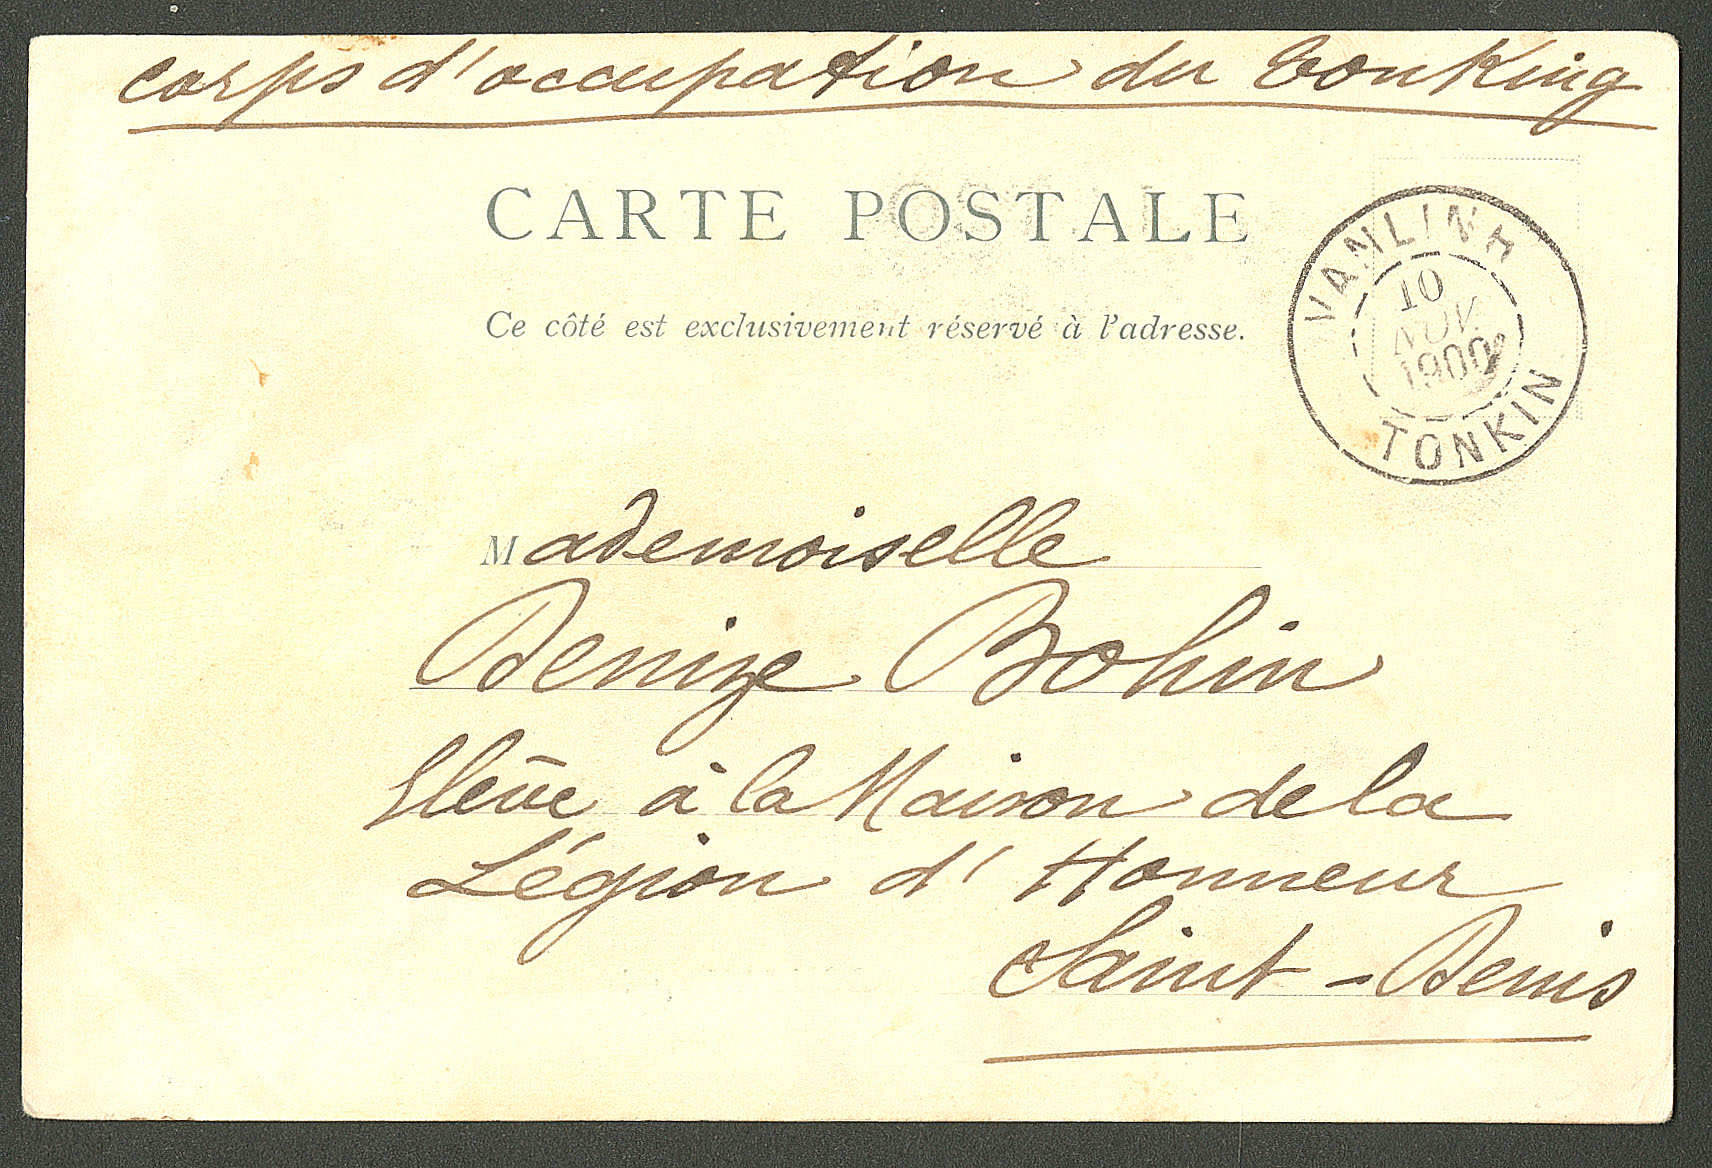 corps d'occupation du Tonking
CARTE POSTALE
VANLINH
10
NOV
1900
TONKIN
Ce côté est exclusivement réservé à l'adresse.
Mademoiselle
Denize Bohin
Elève à la Maison de la
Légion d'Honneur
Saint-Denis